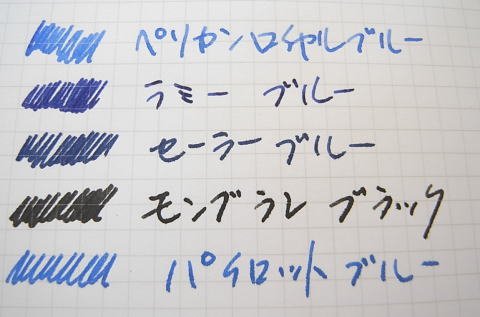 ペリカンロイヤルブルー
ラミー ブルー
セーラー ブルー
モンブラン ブラック
パイロット ブルー